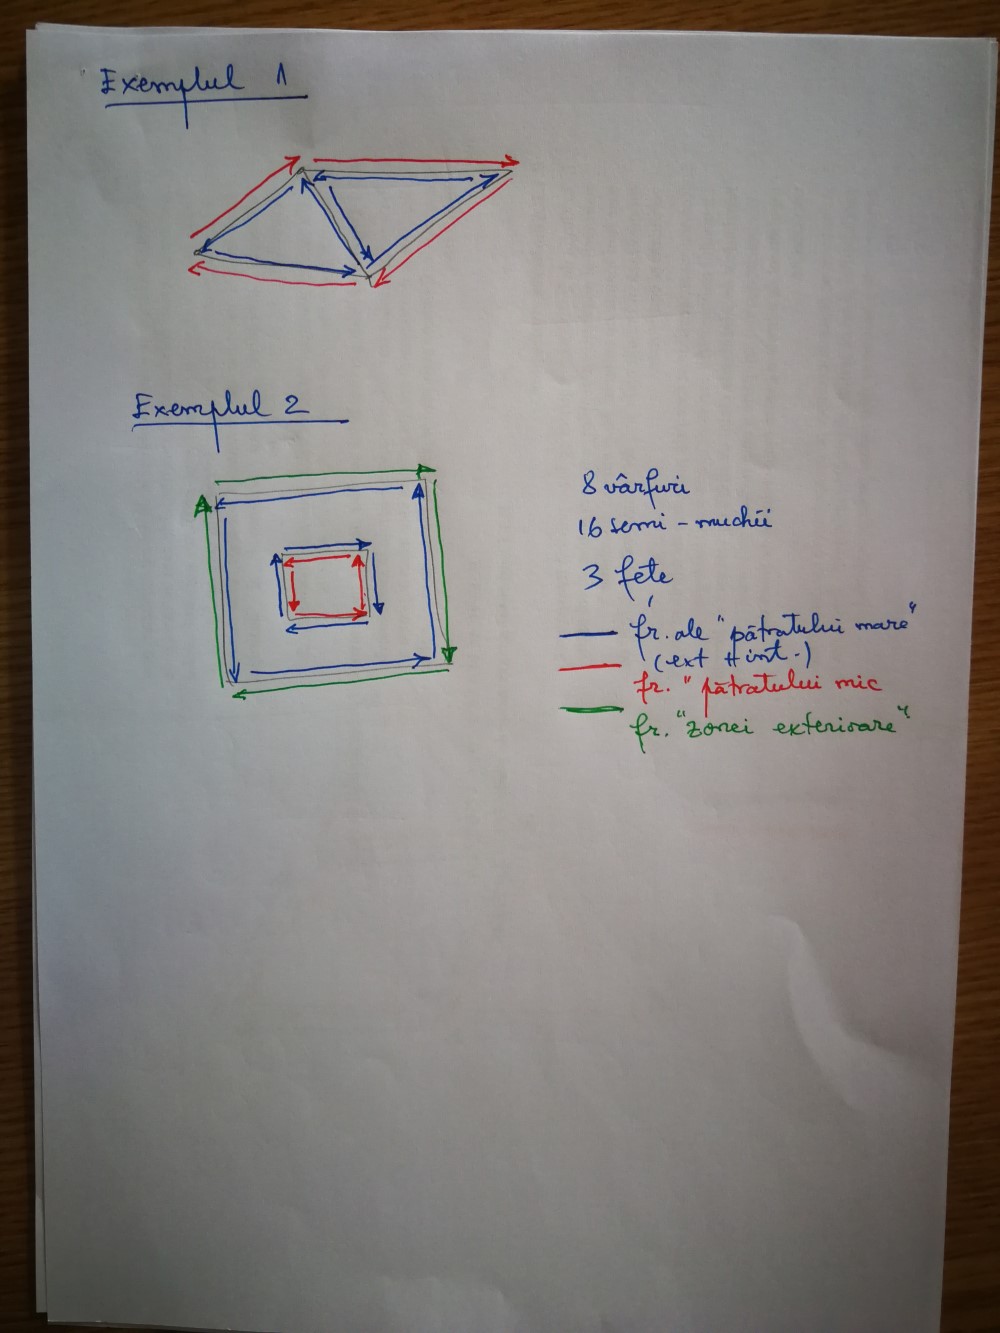 Exemplul 1
Exemplul 2
8 vârfuri
16 semi-muchii
3 fețe
fr. ale "pătratului mare"
(ext + int.)
fr. "pătratului mic
fr. "zonei exterioare"